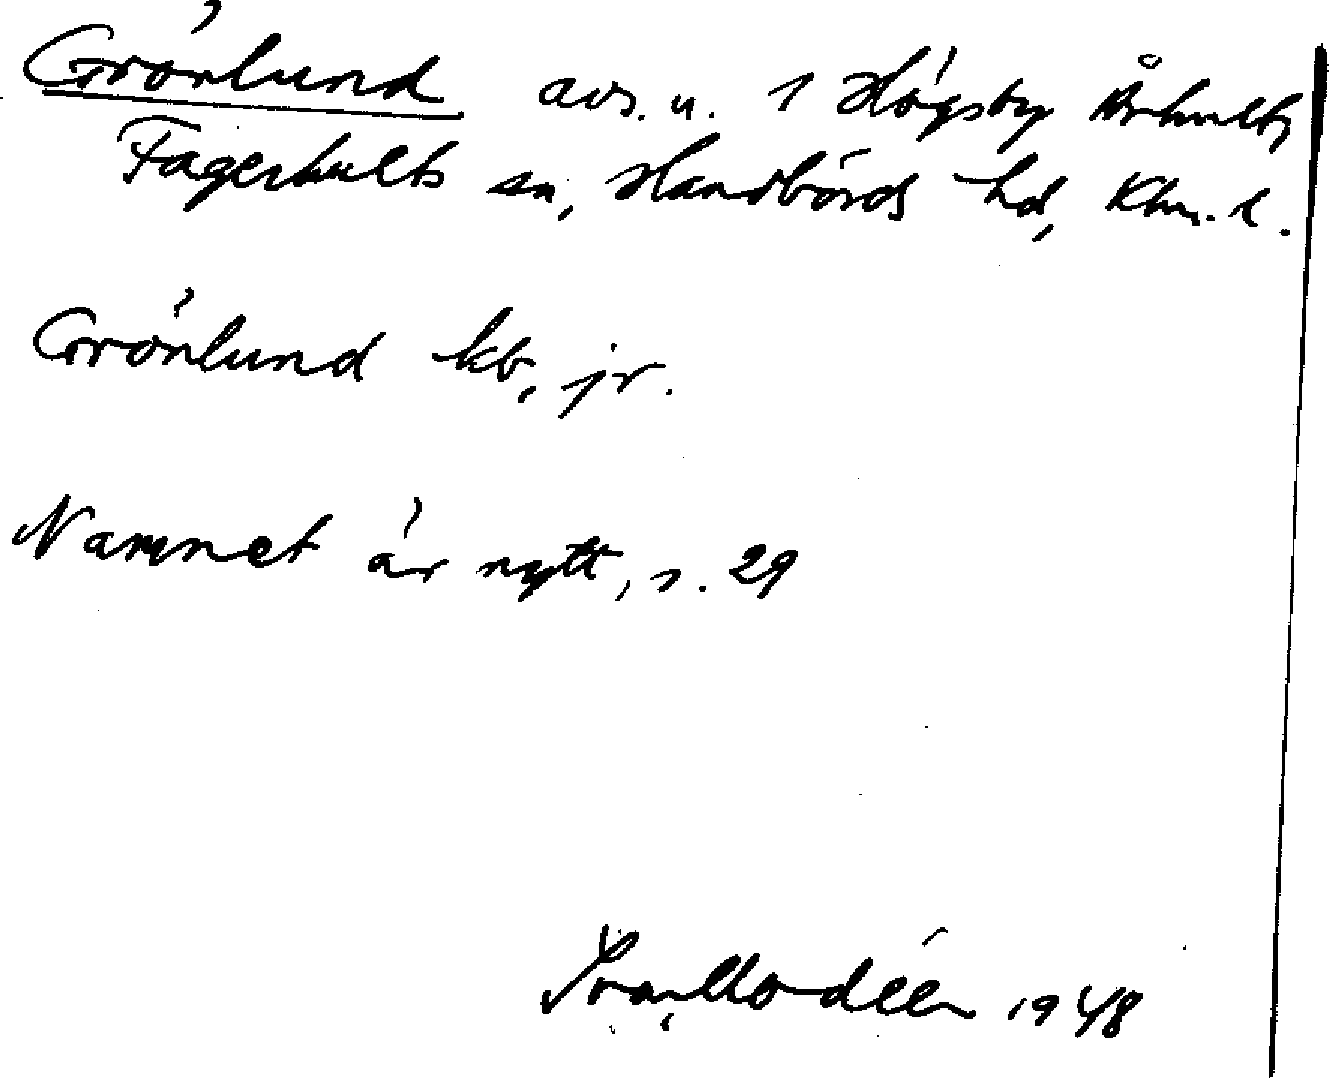 Grönlund avs. u. 1 Högsby Århults
Fagerhults sn, Handbörds hd, Klm. l.
Grönlund kb, jr.
Namnet är nytt, s. 29
Ivar Modéer 1948